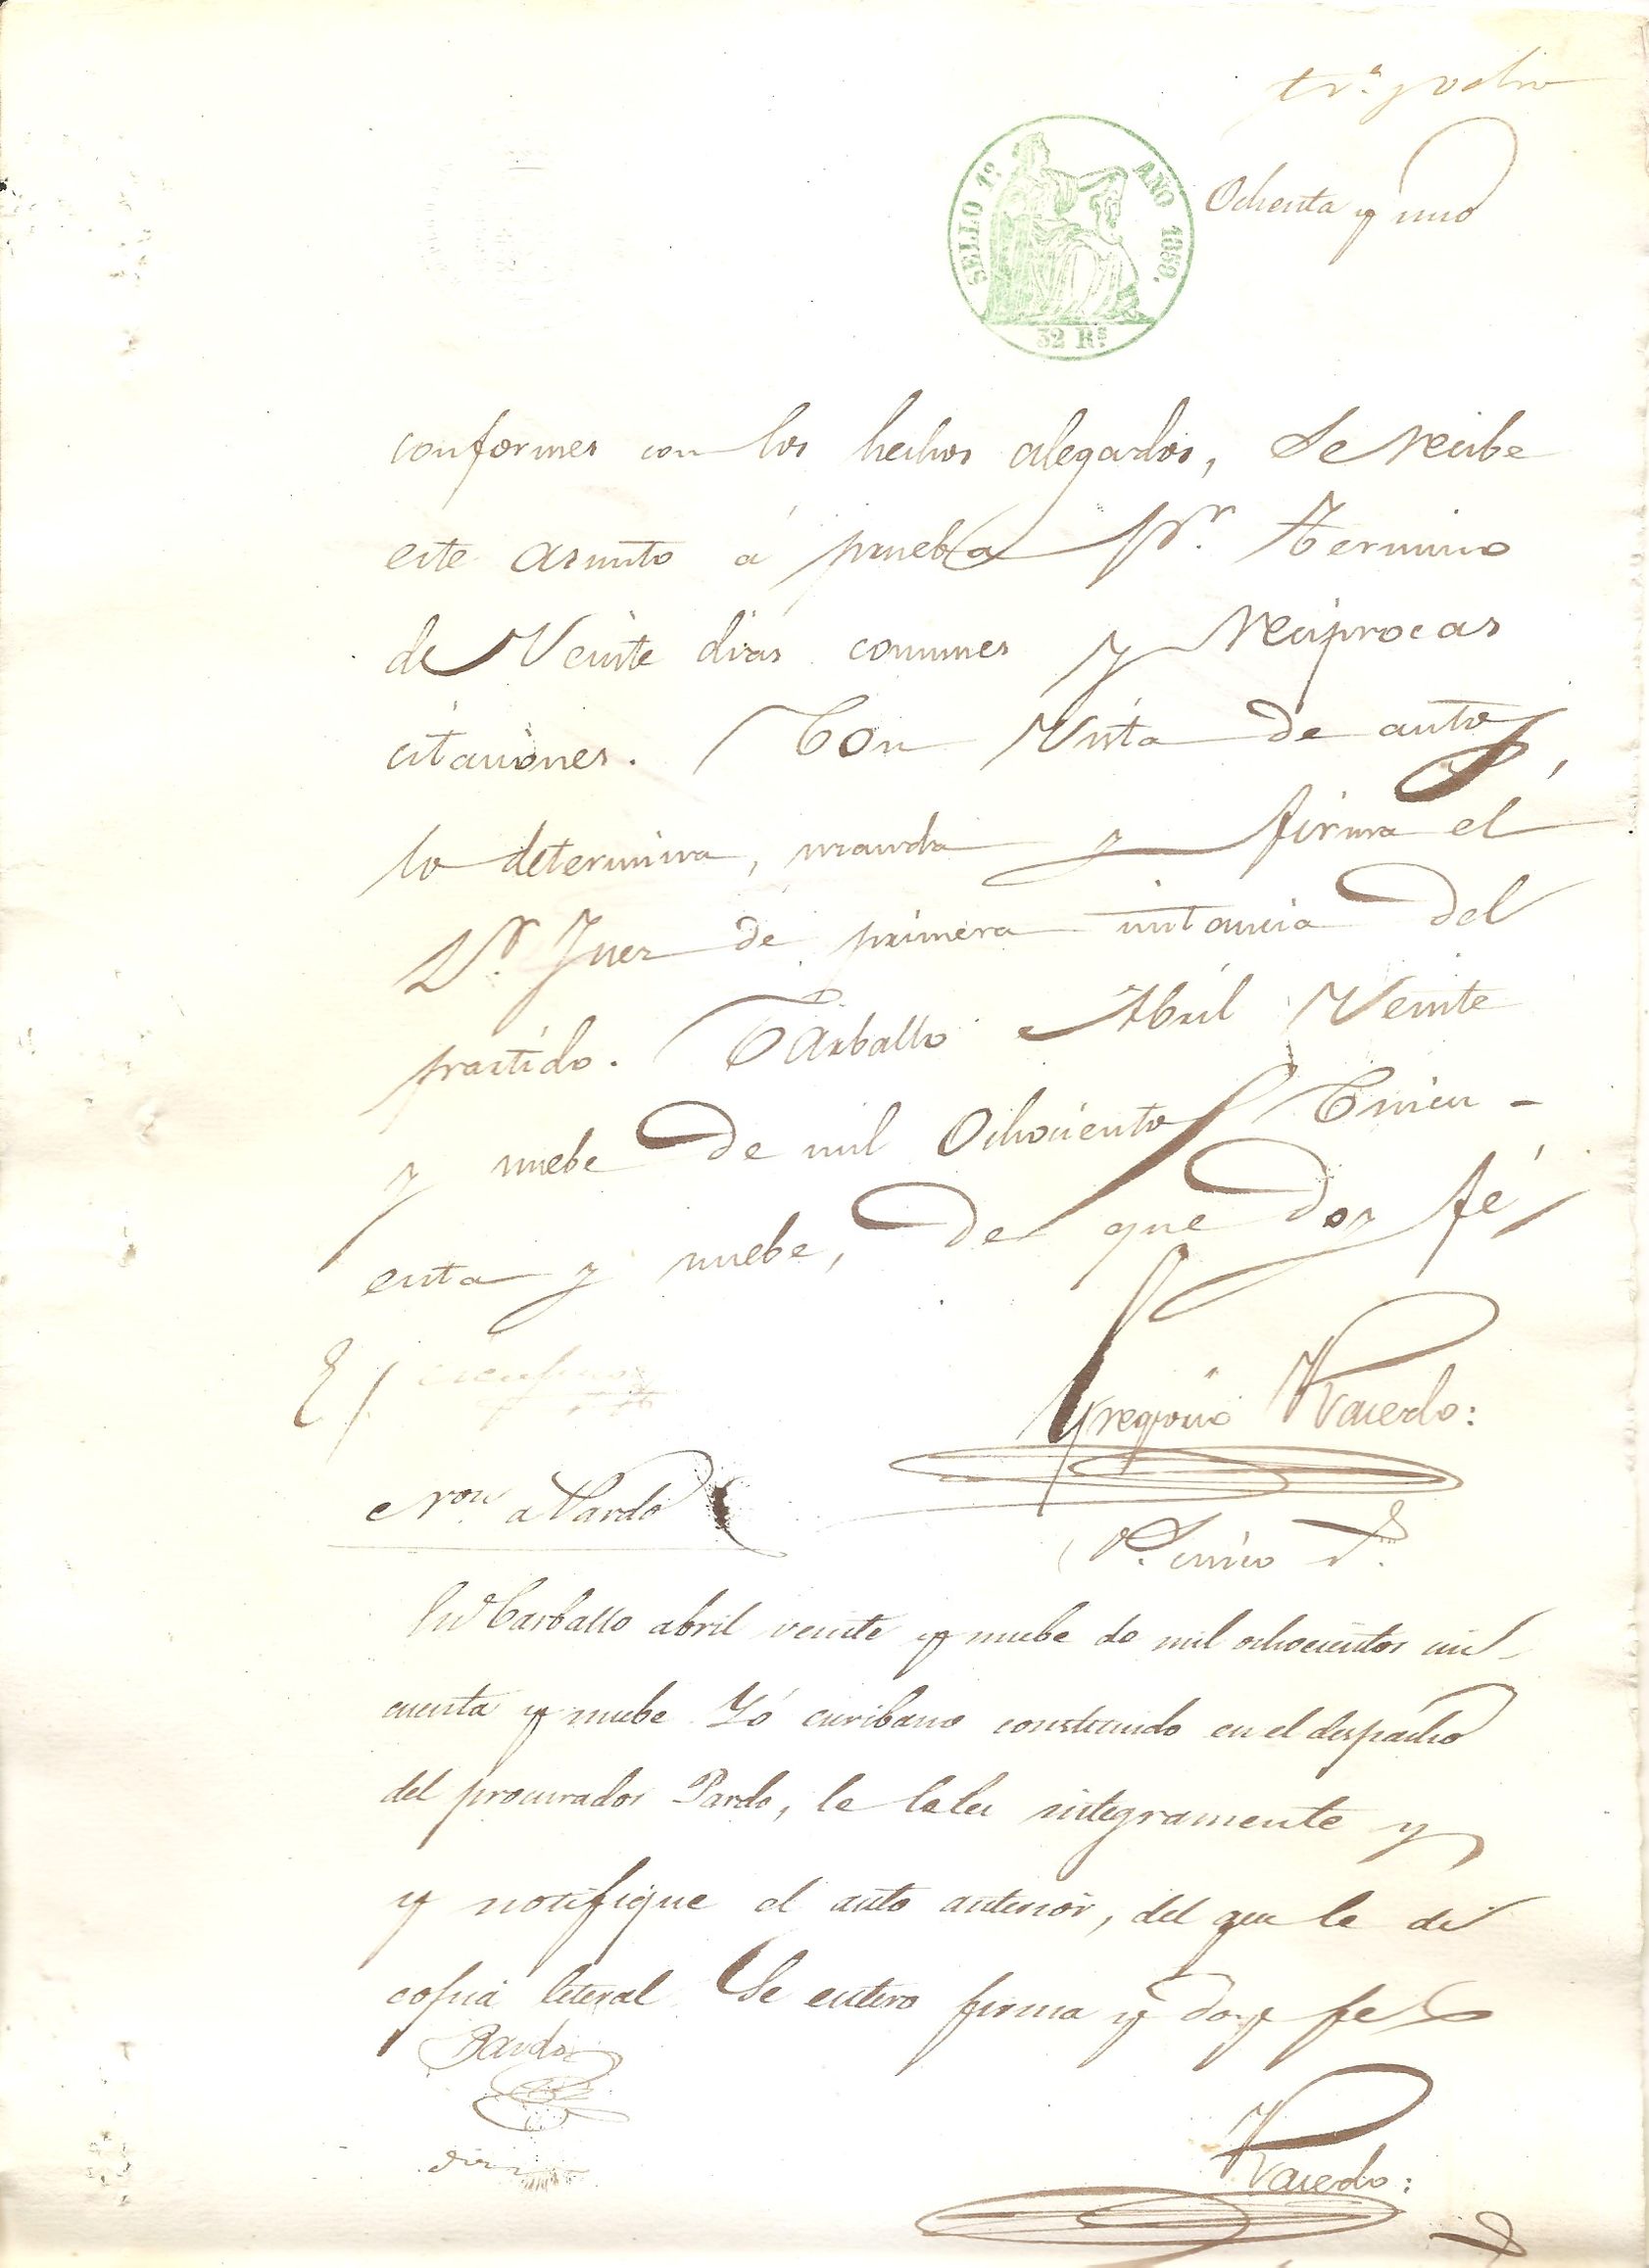 trª y ocho
Ochenta y uno
SELLO 1º AÑO 1859.
32 Rs
conformes con los hechos alegados, Se recibe
este asunto á prueba pr. termino
de Veinte dias comunes y reciprocas
citaciones. Con Vista de autos,
lo determina, manda y firma el
Sr. Juez de primera instancia del
partido. Carballo Abril Veinte
y nuebe de mil Ochocientos Cincu-
enta y nuebe, de que doy fé
Gregorio Racedo:
Non a Pardo
En Carballo abril veinte y nuebe de mil ochocientos cin-
cuenta y nuebe Yó escribano constituido en el despacho
del procurador Pardo, le lei integramente y
y notifique el auto anterior, del que le di
copia literal Se entero firma y doy fe
Pardo
Racedo: